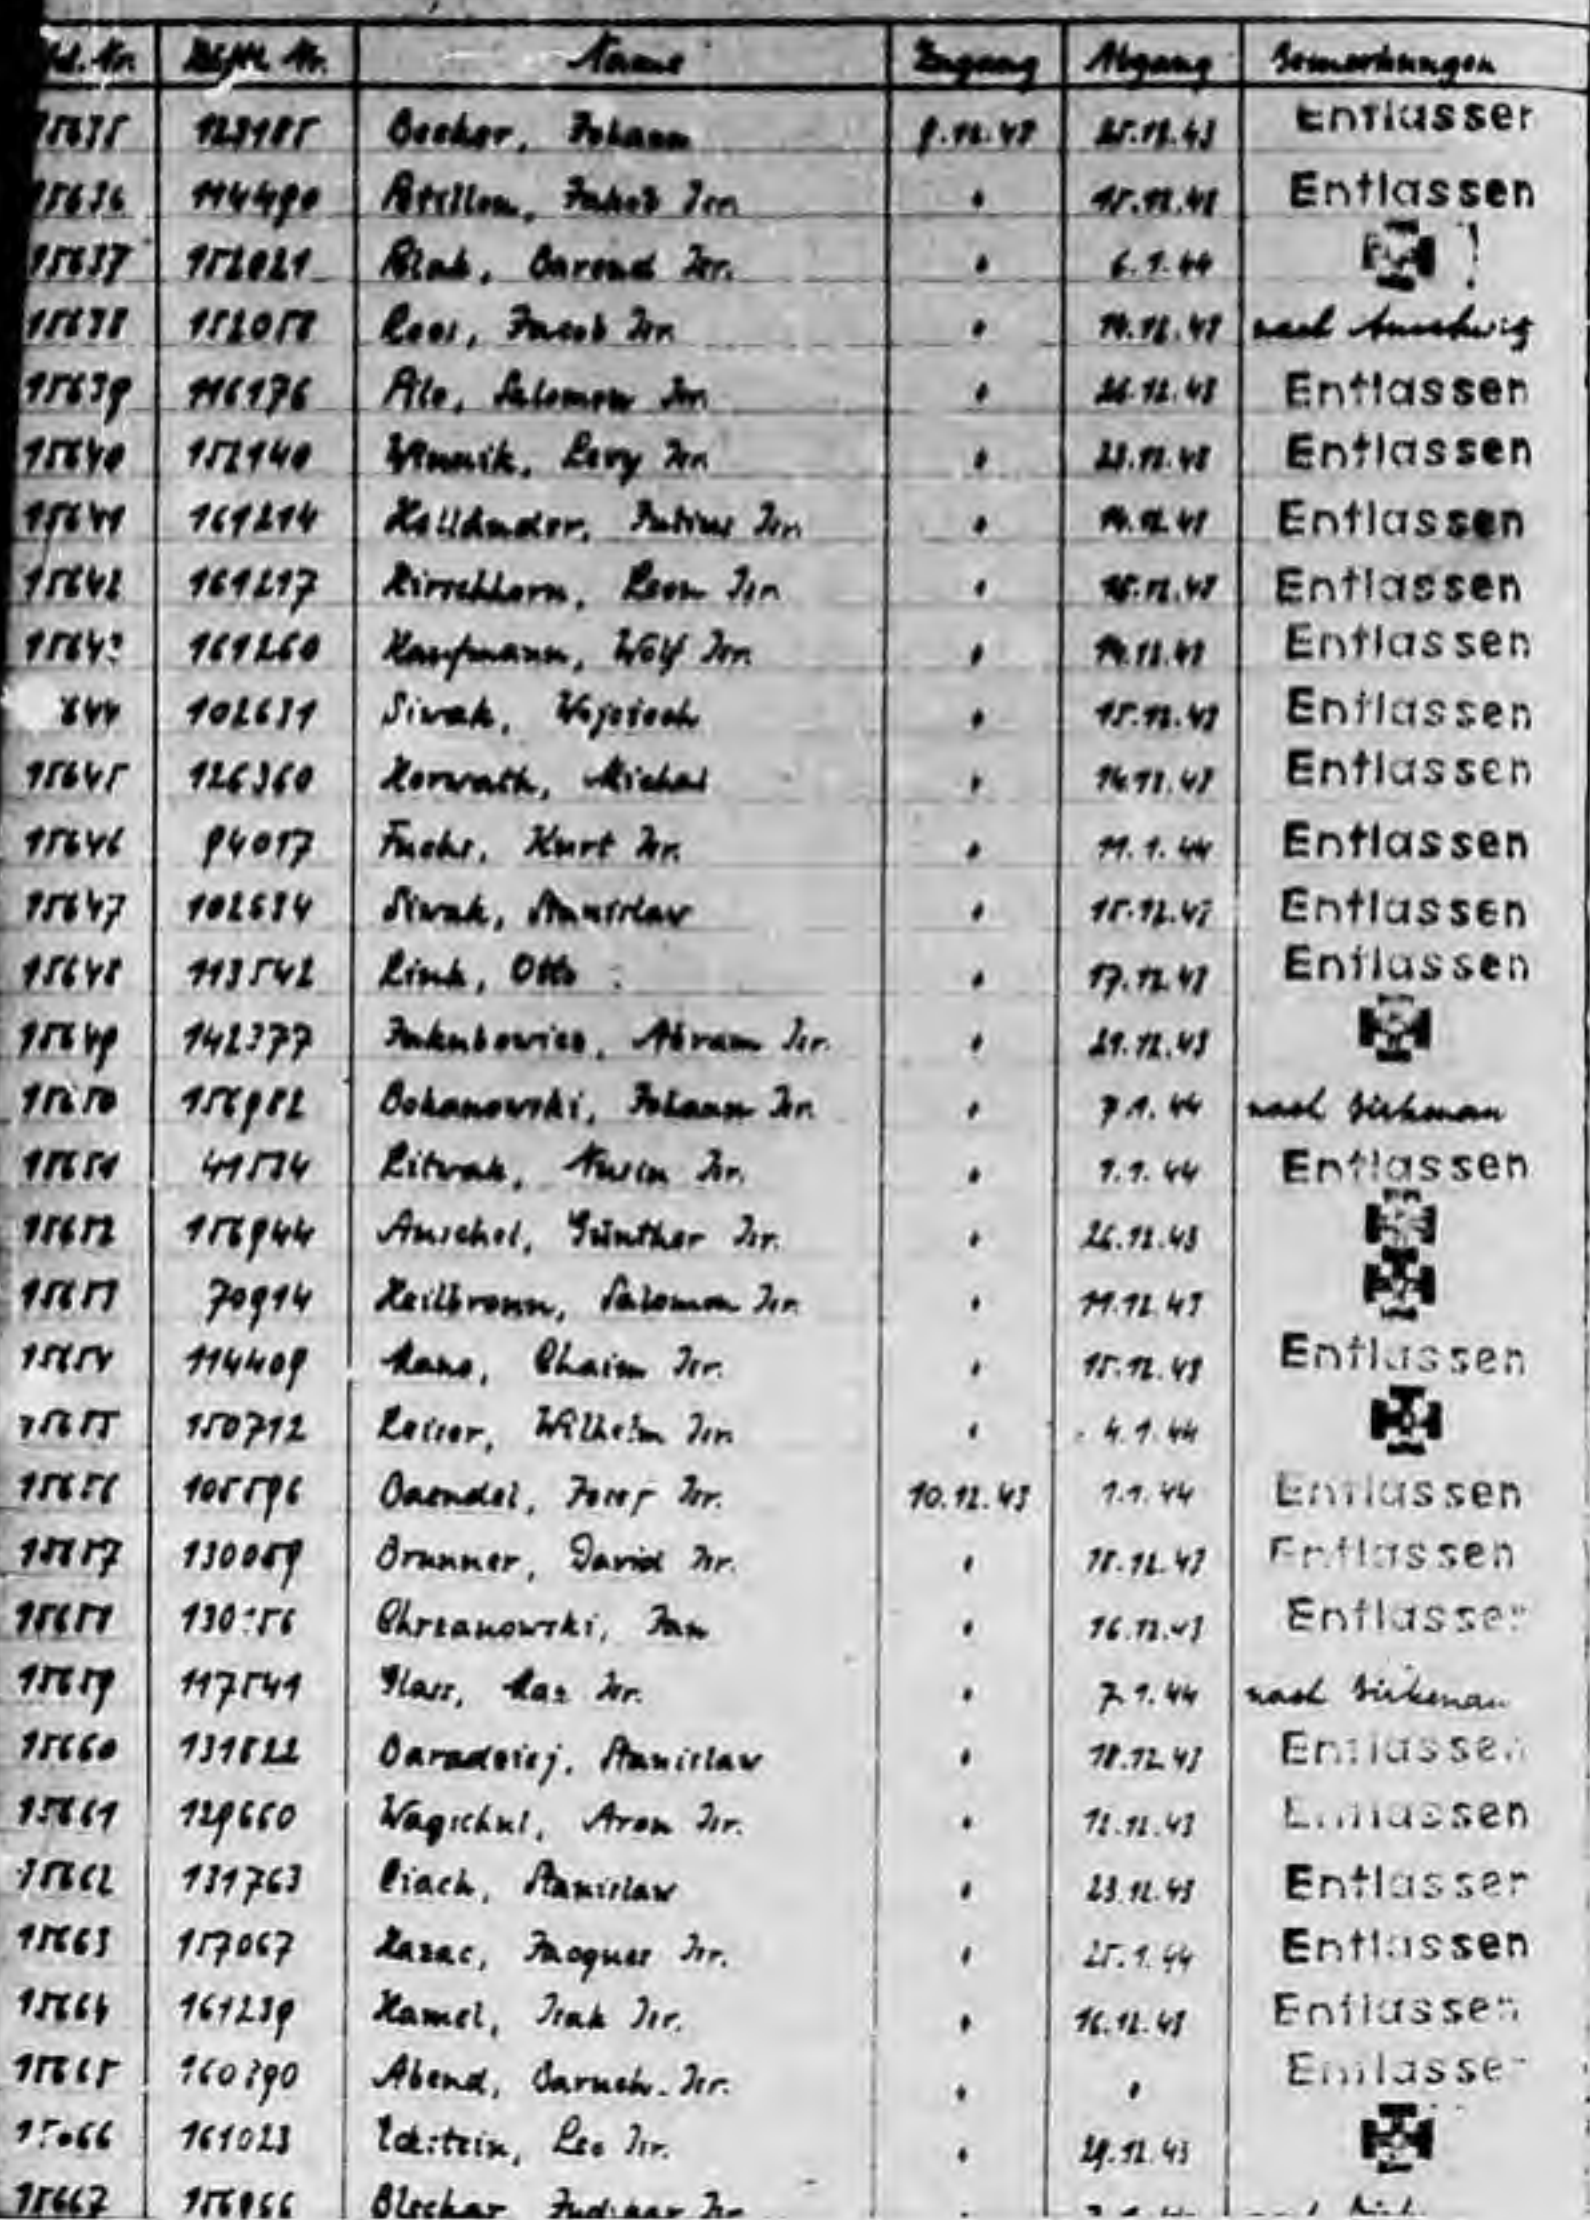 Lfd. Nr. Häftl. Nr. Name Zugang Abgang Bemerkungen
15635 123185 Becher, Johann 9.12.43 25.12.43 Entlassen
15636 114490 Jakob Isr. " 15.12.43 Entlassen
15637 152021 Blak, Barend Isr. " 6.1.44
15638 152058 Roos, Jacob Isr. " 14.12.43 nach Auschwitz
15639 116176 Pilo, Salomon Isr. " 26.12.43 Entlassen
15640 152140 Winnik, Levy Isr. " 23.12.43 Entlassen
15641 161214 Holländer, Julius Isr. " 14.12.43 Entlassen
15642 161217 Hirschhorn, Leon Isr. " 15.12.43 Entlassen
15643 161260 Kaufmann, Wolf Isr. " 14.12.43 Entlassen
644 102631 Siwak, Wojciech " 15.12.43 Entlassen
15645 126360 Horwath, Michal " 14.12.43 Entlassen
15646 94057 Fuchs, Kurt Isr. " 11.1.44 Entlassen
15647 102634 Siwak, Stanislaw " 15.12.43 Entlassen
15648 113542 Link, Otto " 17.12.43 Entlassen
15649 142377 Jakubowicz, Abram Isr. " 29.12.43
15650 156982 Bohanowski, Johann Isr. " 7.1.44 nach Birkenau
15651 41534 Litwak, Nusin Isr. " 1.1.44 Entlassen
15652 156944 Anschel, Günther Isr. " 26.12.43
15653 70914 Heilbronn, Salomon Isr. " 11.12.43
15654 114409 Mano, Chaim Isr. " 15.12.43 Entlassen
15655 150712 Leiser, Wilhelm Isr. " 4.1.44
15656 105596 Baendel, Josef Isr. 10.12.43 1.1.44 Entlassen
15657 130059 Brunner, David Isr. " 15.12.43 Entlassen
15658 Chrzanowski, Jan " 16.12.43 Entlassen
15659 117541 Glass, Max Isr. " 7.1.44 nach Birkenau
15660 131822 Baradziej, Stanislaw " 18.12.43 Entlassen
15661 129660 Wagschal, Aron Isr. " 12.12.43 Entlassen
15662 131763 Ciach, Stanislaw " 23.12.43 Entlassen
15663 157067 Hazac, Jacques Isr. " 25.1.44 Entlassen
15664 161239 Hamel, Isak Isr. " 16.12.43 Entlassen
15665 160390 Abend, Baruch Isr. " " Entlassen
15666 161023 Eckstein, Leo Isr. " 29.12.43
15667 156966 Blecher